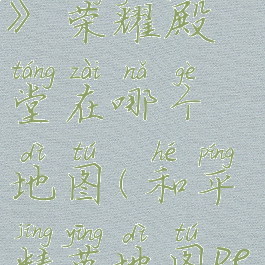 》荣耀殿
táng zài nǎ gè
堂在哪个
dì tú hé píng
地图(和平
jīng yīng dì tú
精英地图pe